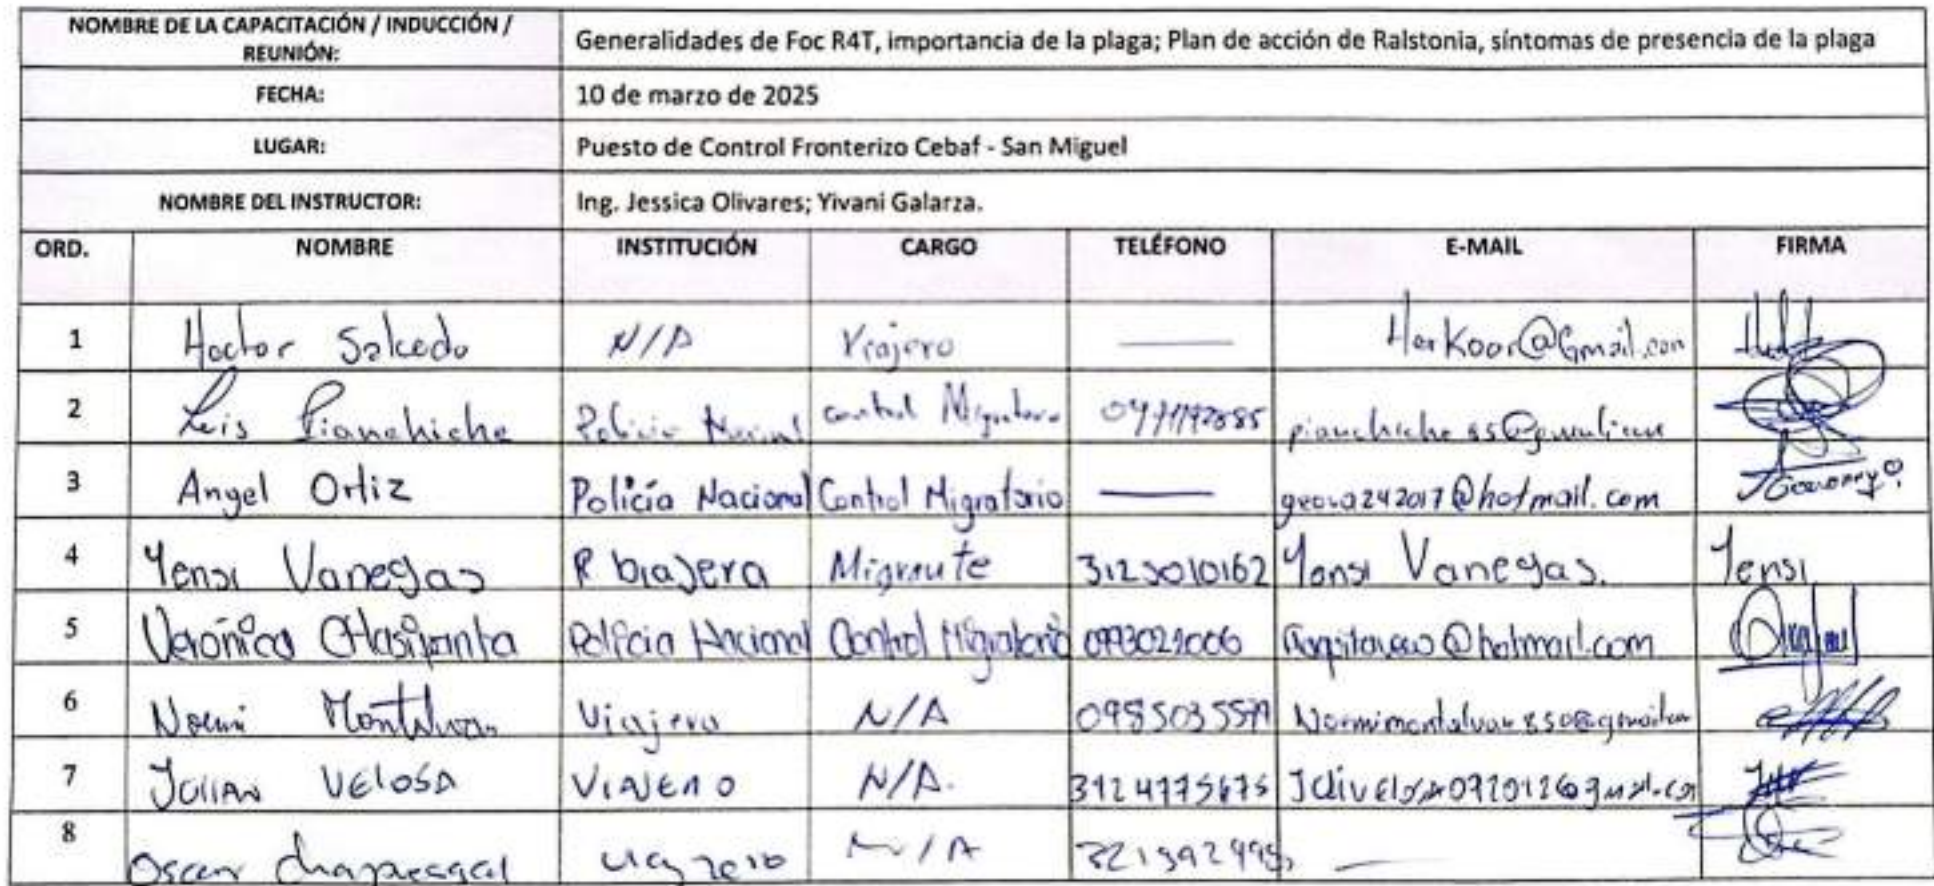 NOMBRE DE LA CAPACITACIÓN / INDUCCIÓN / REUNIÓN: Generalidades de Foc R4T, importancia de la plaga; Plan de acción de Ralstonia, síntomas de presencia de la plaga
FECHA: 10 de marzo de 2025
LUGAR: Puesto de Control Fronterizo Cebaf - San Miguel
NOMBRE DEL INSTRUCTOR: Ing. Jessica Olivares; Yivani Galarza.
ORD. NOMBRE INSTITUCIÓN CARGO TELÉFONO E-MAIL FIRMA
1 Hector Salcedo N/A Viajero — HerKoor@Gmail.com
2 Luis Pianchiche Policia control Migratorio
3 Angel Ortiz Policía Nacional Control Migratorio — geova242017@hotmail.com
4 Yensi Vanegas biajera Migrante Yensi Vanegas. Yensi
5 Verónica Chasipanta Policia Nacional Control Migratorio 0993021006 @hotmail.com
6 Noemi Montalvan Viajera N/A 0985035579
7 Julian VELOSA VIAJERO N/A. 3124775675
8 Oscar viajero N/A —